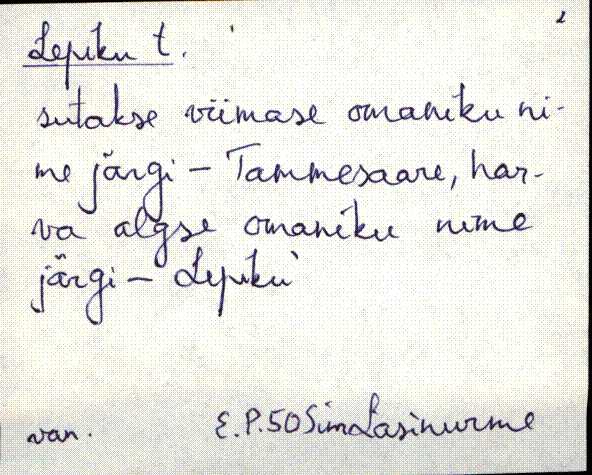 2
Lepiku t.
sutakse viimase omaniku ni-
me järgi – Tammesaare, har-
va algse omaniku nime
järgi – Lepiku
van. E.P. 50 Sim Lasinurme